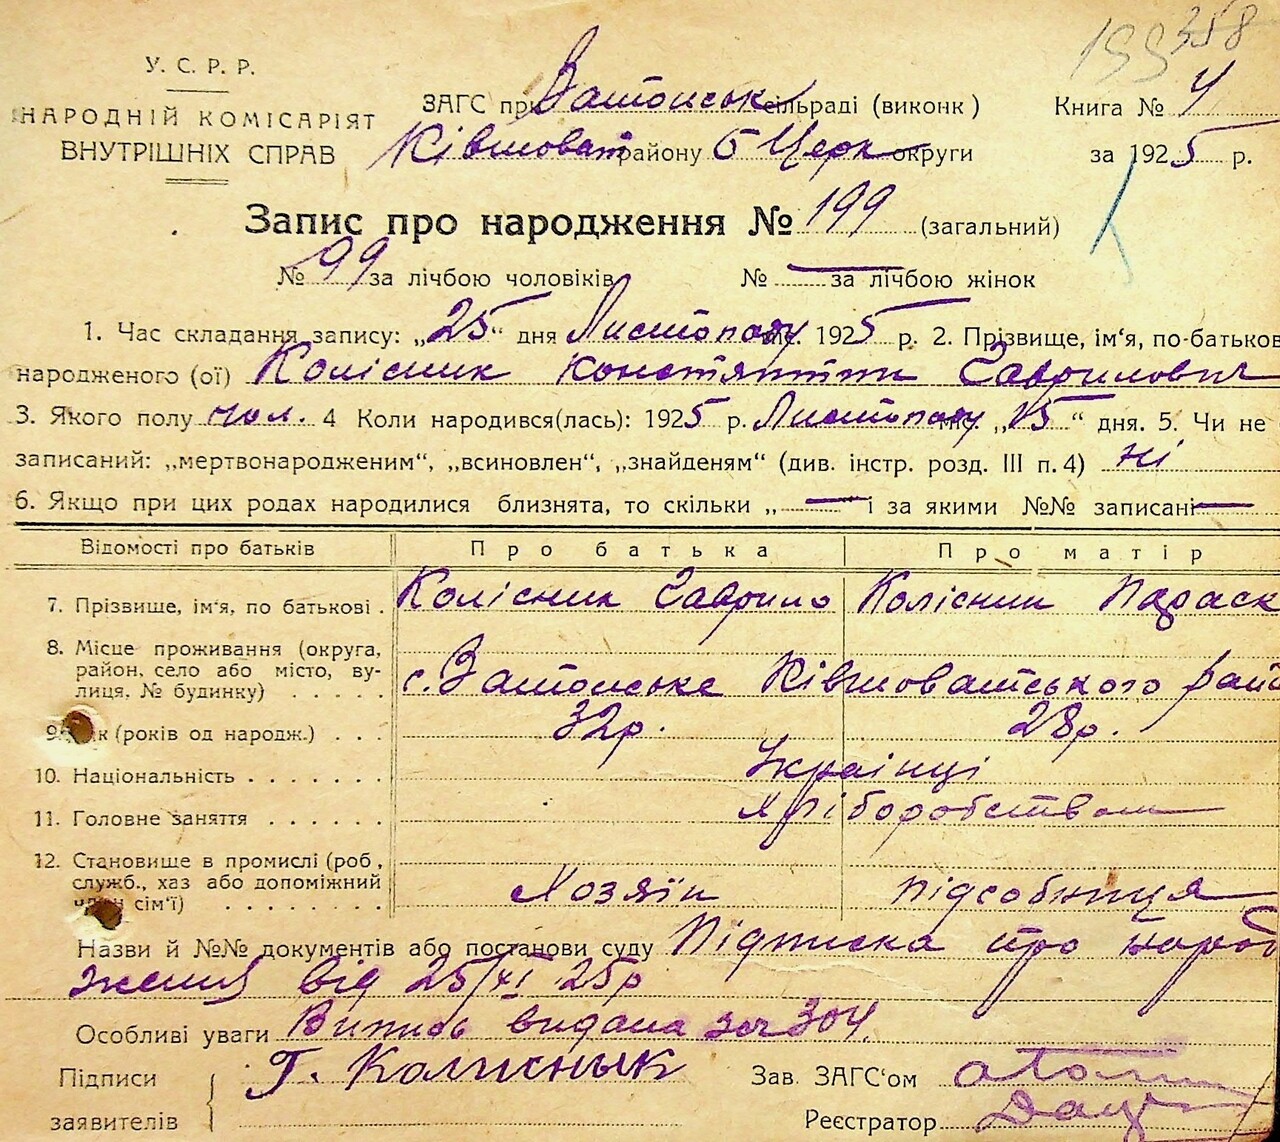 199 358
У. С. Р. Р.
НАРОДНІЙ КОМІСАРІЯТ
ВНУТРІШНІХ СПРАВ
ЗАГС при Затонськ сільраді (виконк)
Книга № 4
Ківшоват району Б Церк округи
за 1925 р.
Запис про народження № 199 (загальний)
№ 99 за лічбою чоловіків № — за лічбою жінок
1. Час складання запису: „25“ дня Листопаду міс. 1925 р. 2. Прізвище, ім‘я, по-батьков
народженого (ої) Колісник Константин Гаврилович
3. Якого полу чол. 4 Коли народився(лась): 1925 р. Листопаду міс. „15“ дня. 5. Чи не
записаний: „мертвонародженим“, „всиновлен“, „знайденям“ (див. інстр. розд. III п. 4) ні
6. Якщо при цих родах народилися близнята, то скільки „ — і за якими №№ записані —
Відомості про батьків Про батька Про матір
7. Прізвище, ім‘я, по батькові . Колісник Гаврило Колісник Параск
8. Місце проживання (округа,
район, село або місто, ву-
лиця, № будинку) . . . . . с. Затонське Ківшоватського рай
9. (років од народж.) . . . 32р. 28р.
10. Національність . . . . . . . Українці
11. Головне заняття . . . . . . Хліборобством
12. Становище в промислі (роб,
служб., хаз або допоміжний
член сім‘ї) . . . . . . . . Хозяїн підсобниця
Назви й №№ документів або постанови суду Підписка про народ
ження від 25/XI 25р
Особливі уваги Випись видана за 304.
Підписи
заявителів
Г. Колиснык
Зав. ЗАГС‘ом
Реєстратор